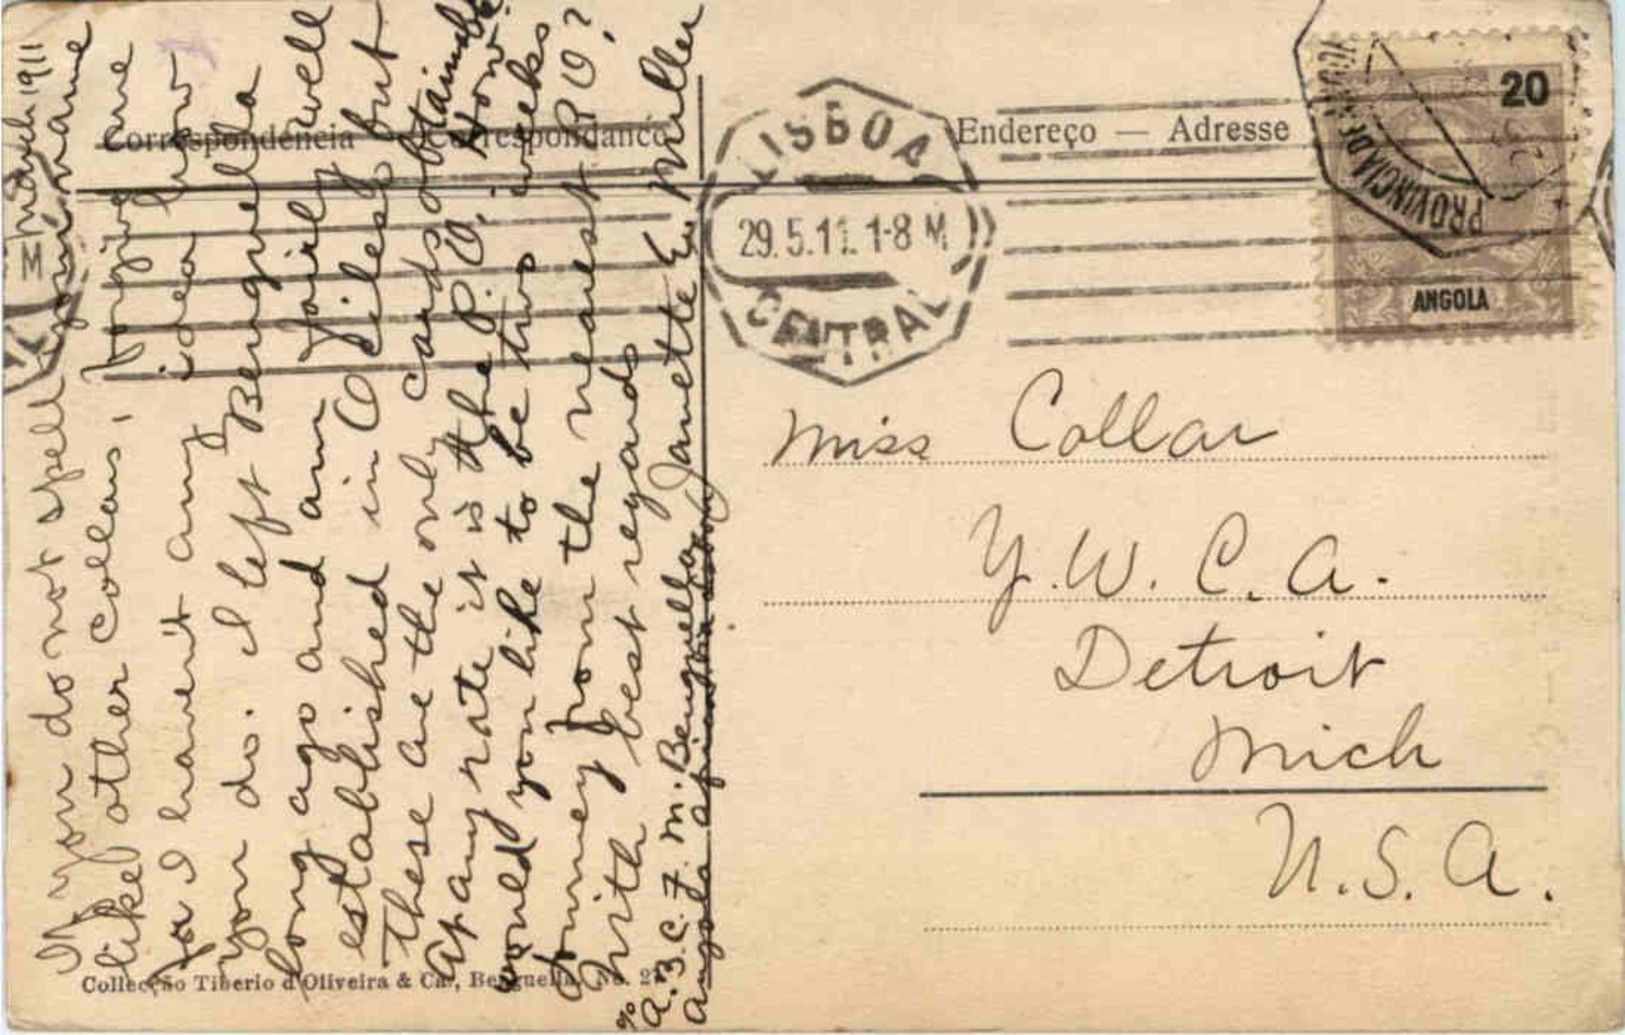 Correspondencia — Correspondance
Endereço — Adresse
LISBOA
29.5.11. 1-8 M
CENTRAL
M
20
ANGOLA
PROVINCIA DE
March 1911
If you do not spell your name
like other Collars, forgive me
for I haven't any idea how
you do. I left Benguella
long ago and am fairly well
established in Ochileso but
these are the only cards obtainable
At any rate it is the P.O. How
would you like to be two weeks
journey from the nearest P.O?
With best regards
Janette E. Miller
% A.B.C.F.M. Benguella
Angola Africa
Miss Collar
Y.W.C.A.
Detroit
Mich
U.S.A.
Collecção Tiberio d'Oliveira & Ca., Benguella. No. 2